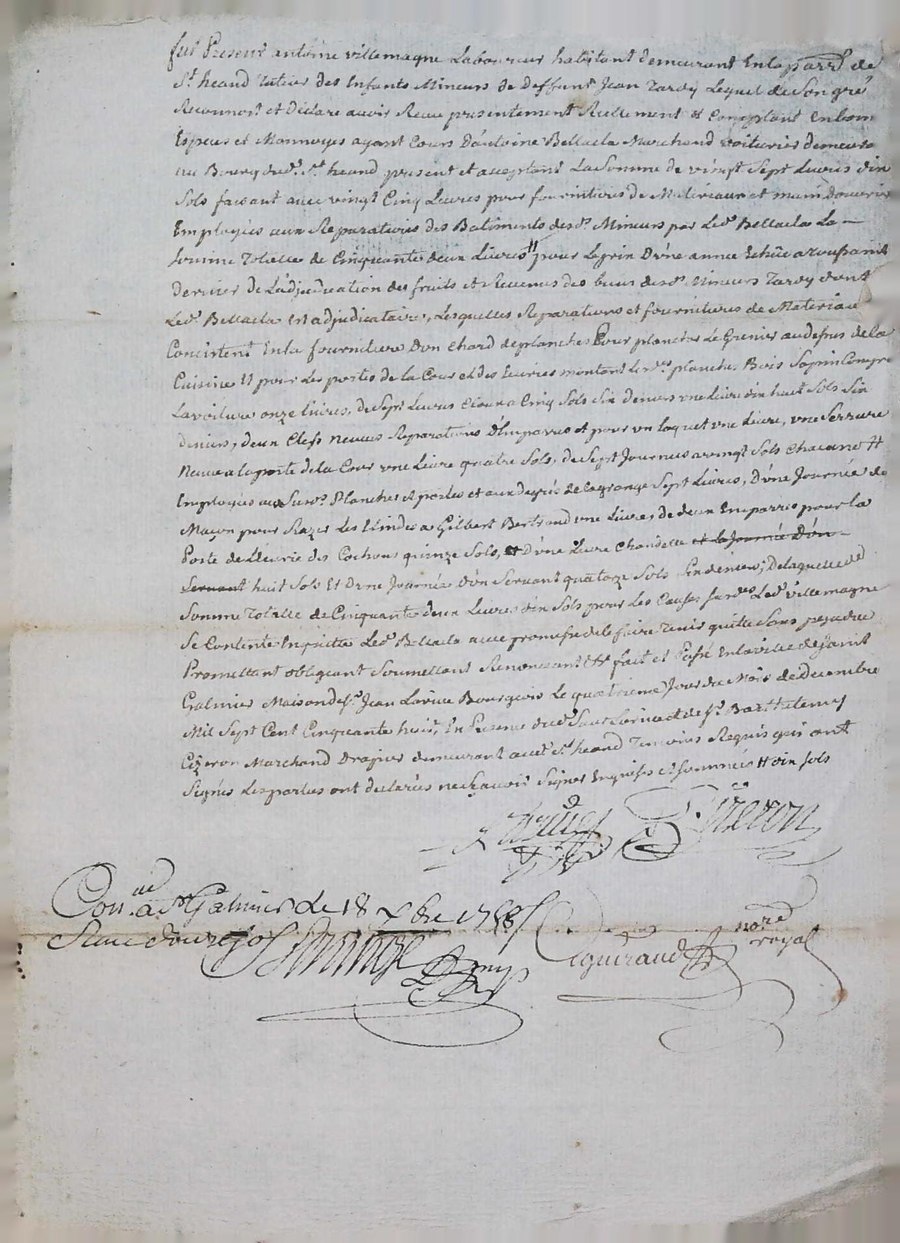 fut Present antoine villemagne Laboureur habitant demeurant En la parr.e de
S.t heand tuteur des Enfants Mineurs de deffunt Jean Tardy Lequel de Son gré
Reconnoit et Declare avoir Receu presentement Reellement et Comptant En bon
Especes et Monnoyes ayant Cours D'antoine Bellacla Marchand voiturier demeurt
au Bourg dud. S.t heand present et acceptant La Somme de vingt Sept Livres dix
Sols faisant avec vingt Cinq Livres pour fournitures de Materiaux et main D'ouvrier
Employées aux Reparations des Batiments desd. Mineurs par Led. Bellacla La
Somme Totalle de Cinquante deux Livres # pour Le prix D'une année Echüe a toussaint
dernier de L'adjudication des fruits et Revenus des biens desd. Mineurs Tardy dont
Led. Bellacla Est adjudicataire, Lesquelles Reparations et fournitures de Materiau
Concistent En la fourniture D'un Chard de planches Pour plancher Le Grenier au dessus de la
Cuisine Et pour Les portes de la Cour et des Ecuries montant Lesd. planche, Bois Sapin Compris
La voiture onze Livres, de Sept Livres Cloux a Cinq Sols Six deniers une Livre dix huit Sols Six
deniers, deux Clefs Neuves Reparations D'Emparres et pour un Loquet une Livre, une Serrure
Neuve a la porte de la Cour une Livre quatre Sols, de Sept Journées a vingt Sols Chacune #
Employées aux Susd. Planches et portes et aux degrés de la grange Sept Livres, D'une Journée de
Maçon pour Razer Les a Gilbert Bertrand une Livre, de deux Emparres pour la
Porte de L'ecurie des Cochons quinze Sols, et D'une Livre Chandelle et la Journée D'un
Servant huit Sols Et D'une Journée D'un Servant quatorze Sols Six deniers, De laquelle de
Somme Totalle de Cinquante deux Livres dix Sols pour Les Causes Susd. Led. villemagne
Se Contente En quitte Led. Bellacla avec promesse de le faire Tenir quitte Sans prejudice
Promettant obligeant Soumettant Renonceant &a fait et Passé En la ville de Saint
Galmier Maison de S.r Jean Bourgeois Le quatrieme Jour du Mois de Decembre
Mil Sept Cent Cinquante huit, En Presence dud. Sieur et de S.r Barthelemy
Cizeron Marchand Drapier demeurant aud. S.t heand Temoins Requis qui ont
Signés Les parties ont declarées ne Sçavoir Signer Enquises et Sommées # dix sols
Cizeron
Con.lé a S.t Galmier Le 18 Xbre 1758
no.re
royal